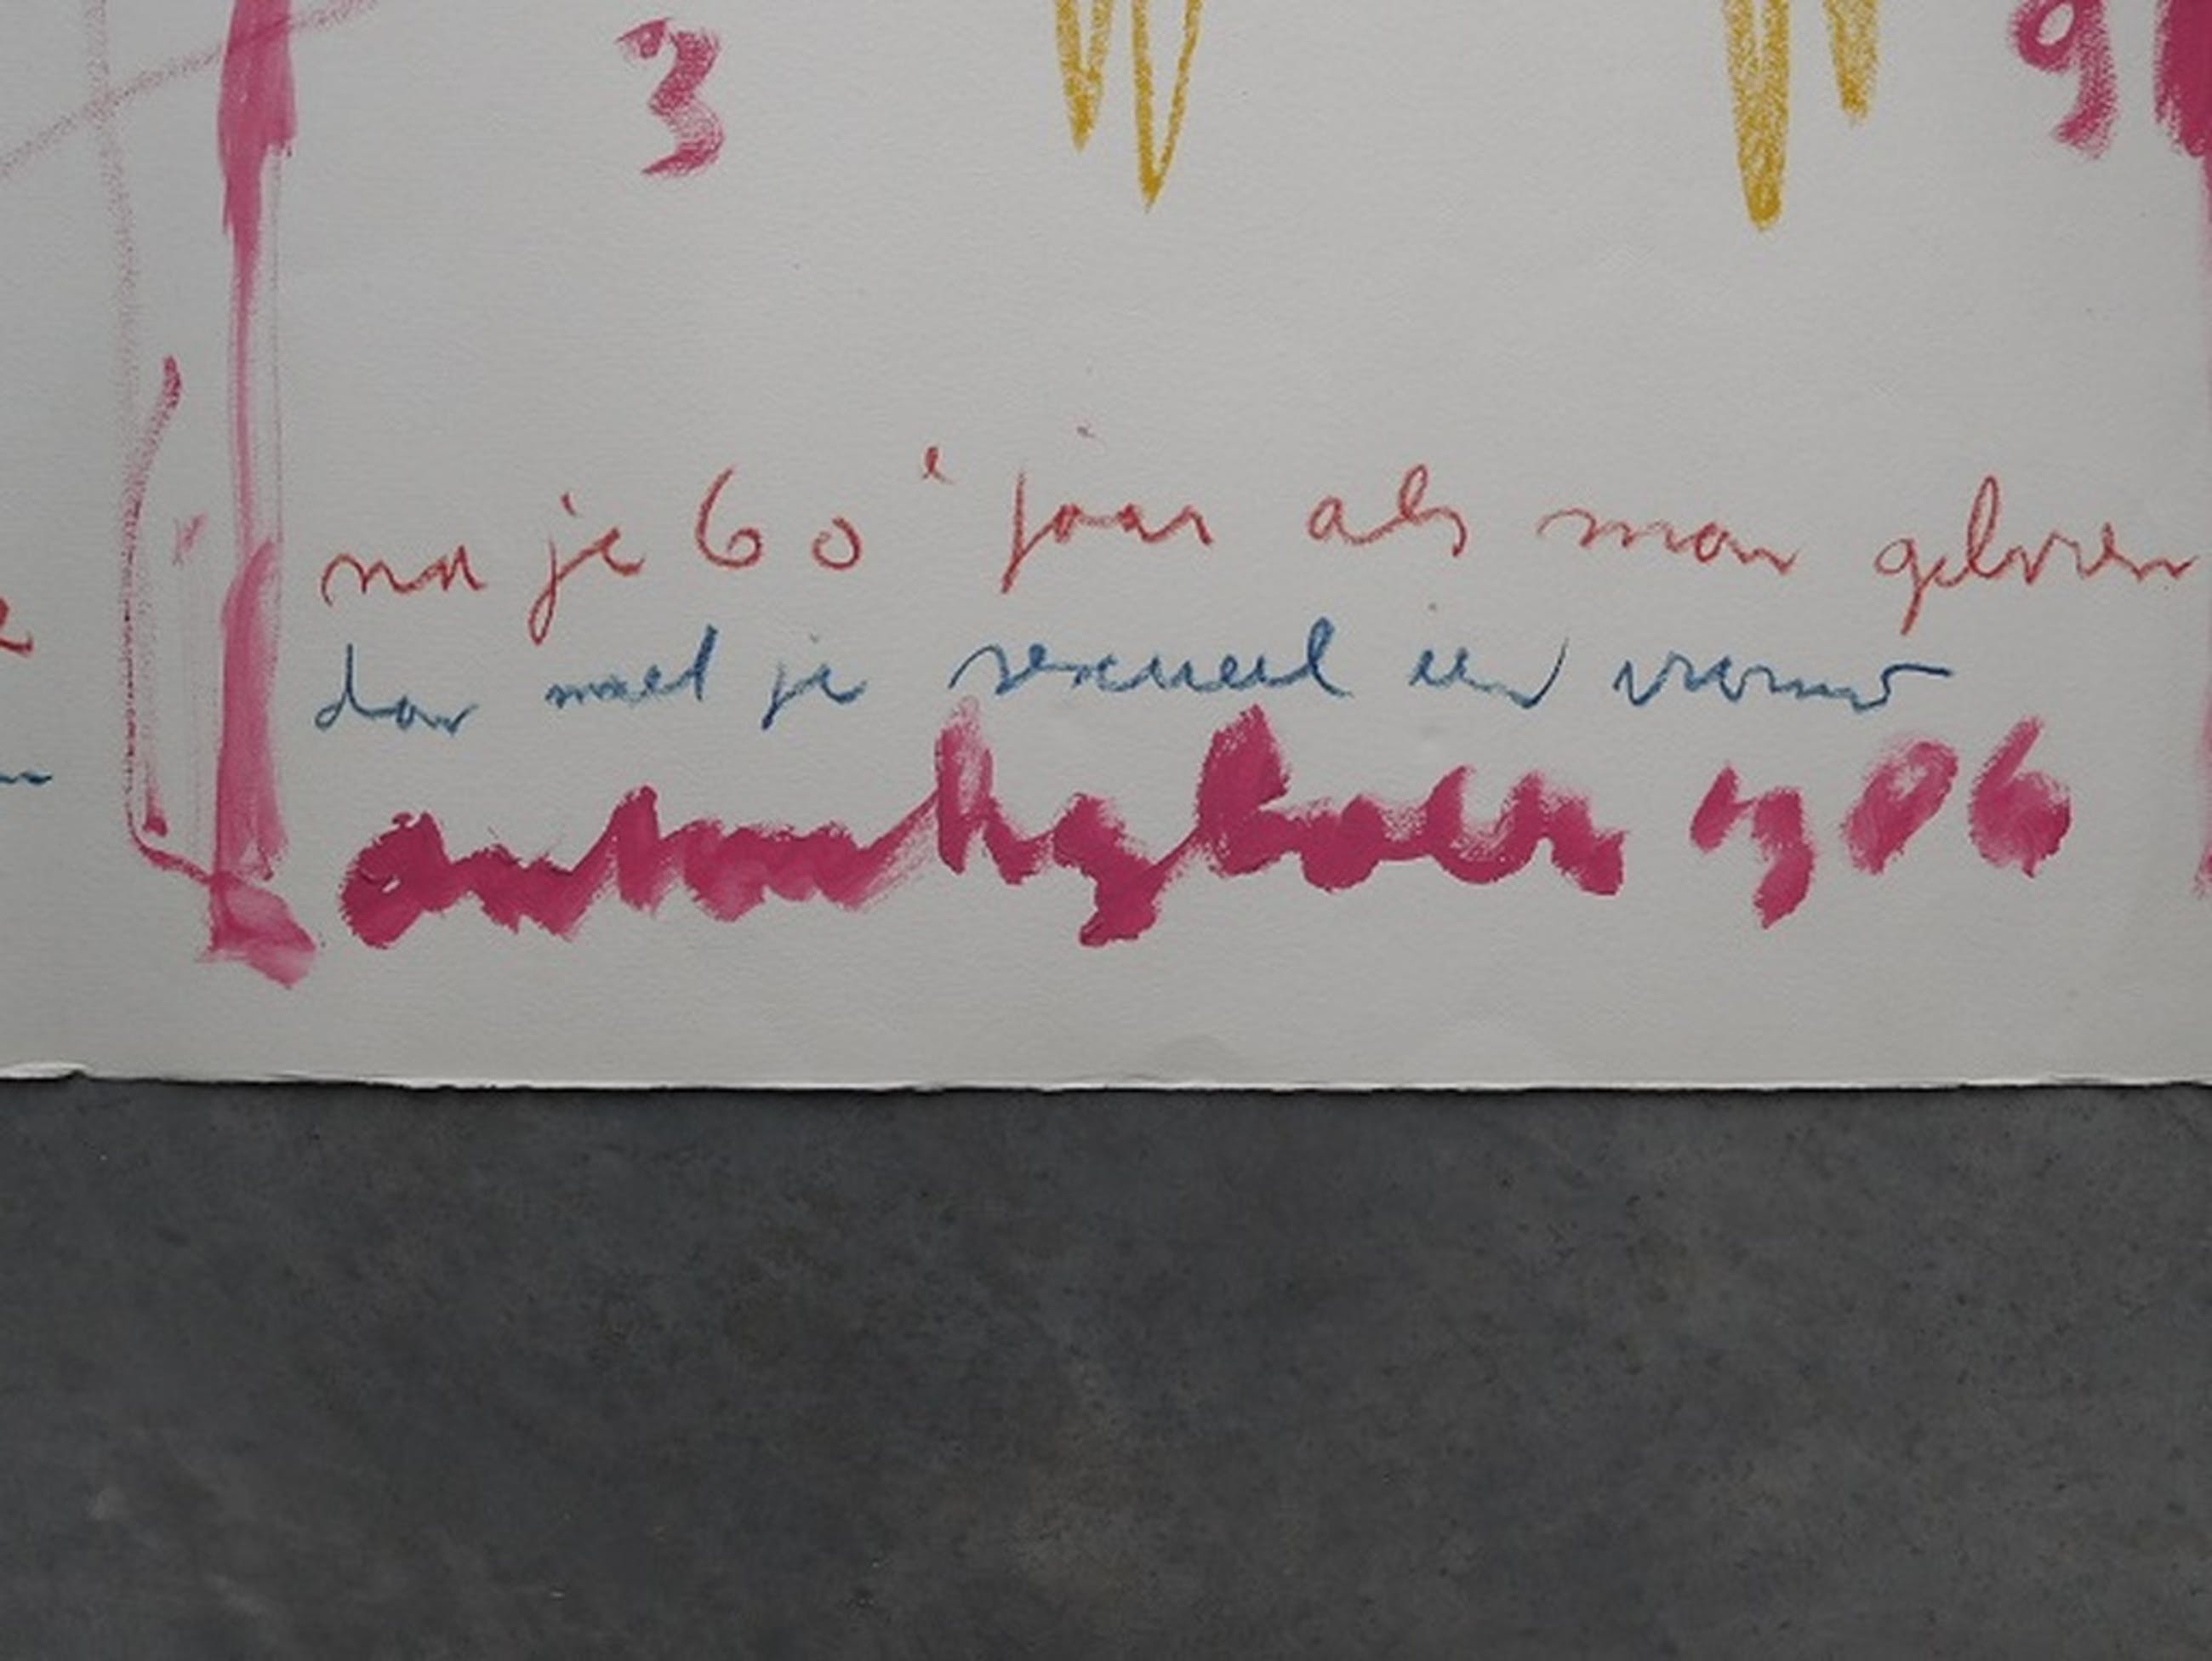 3
9
na je 60e jaar als man geloven
dan met je sexueel een vrouw
anton heyboer 1986